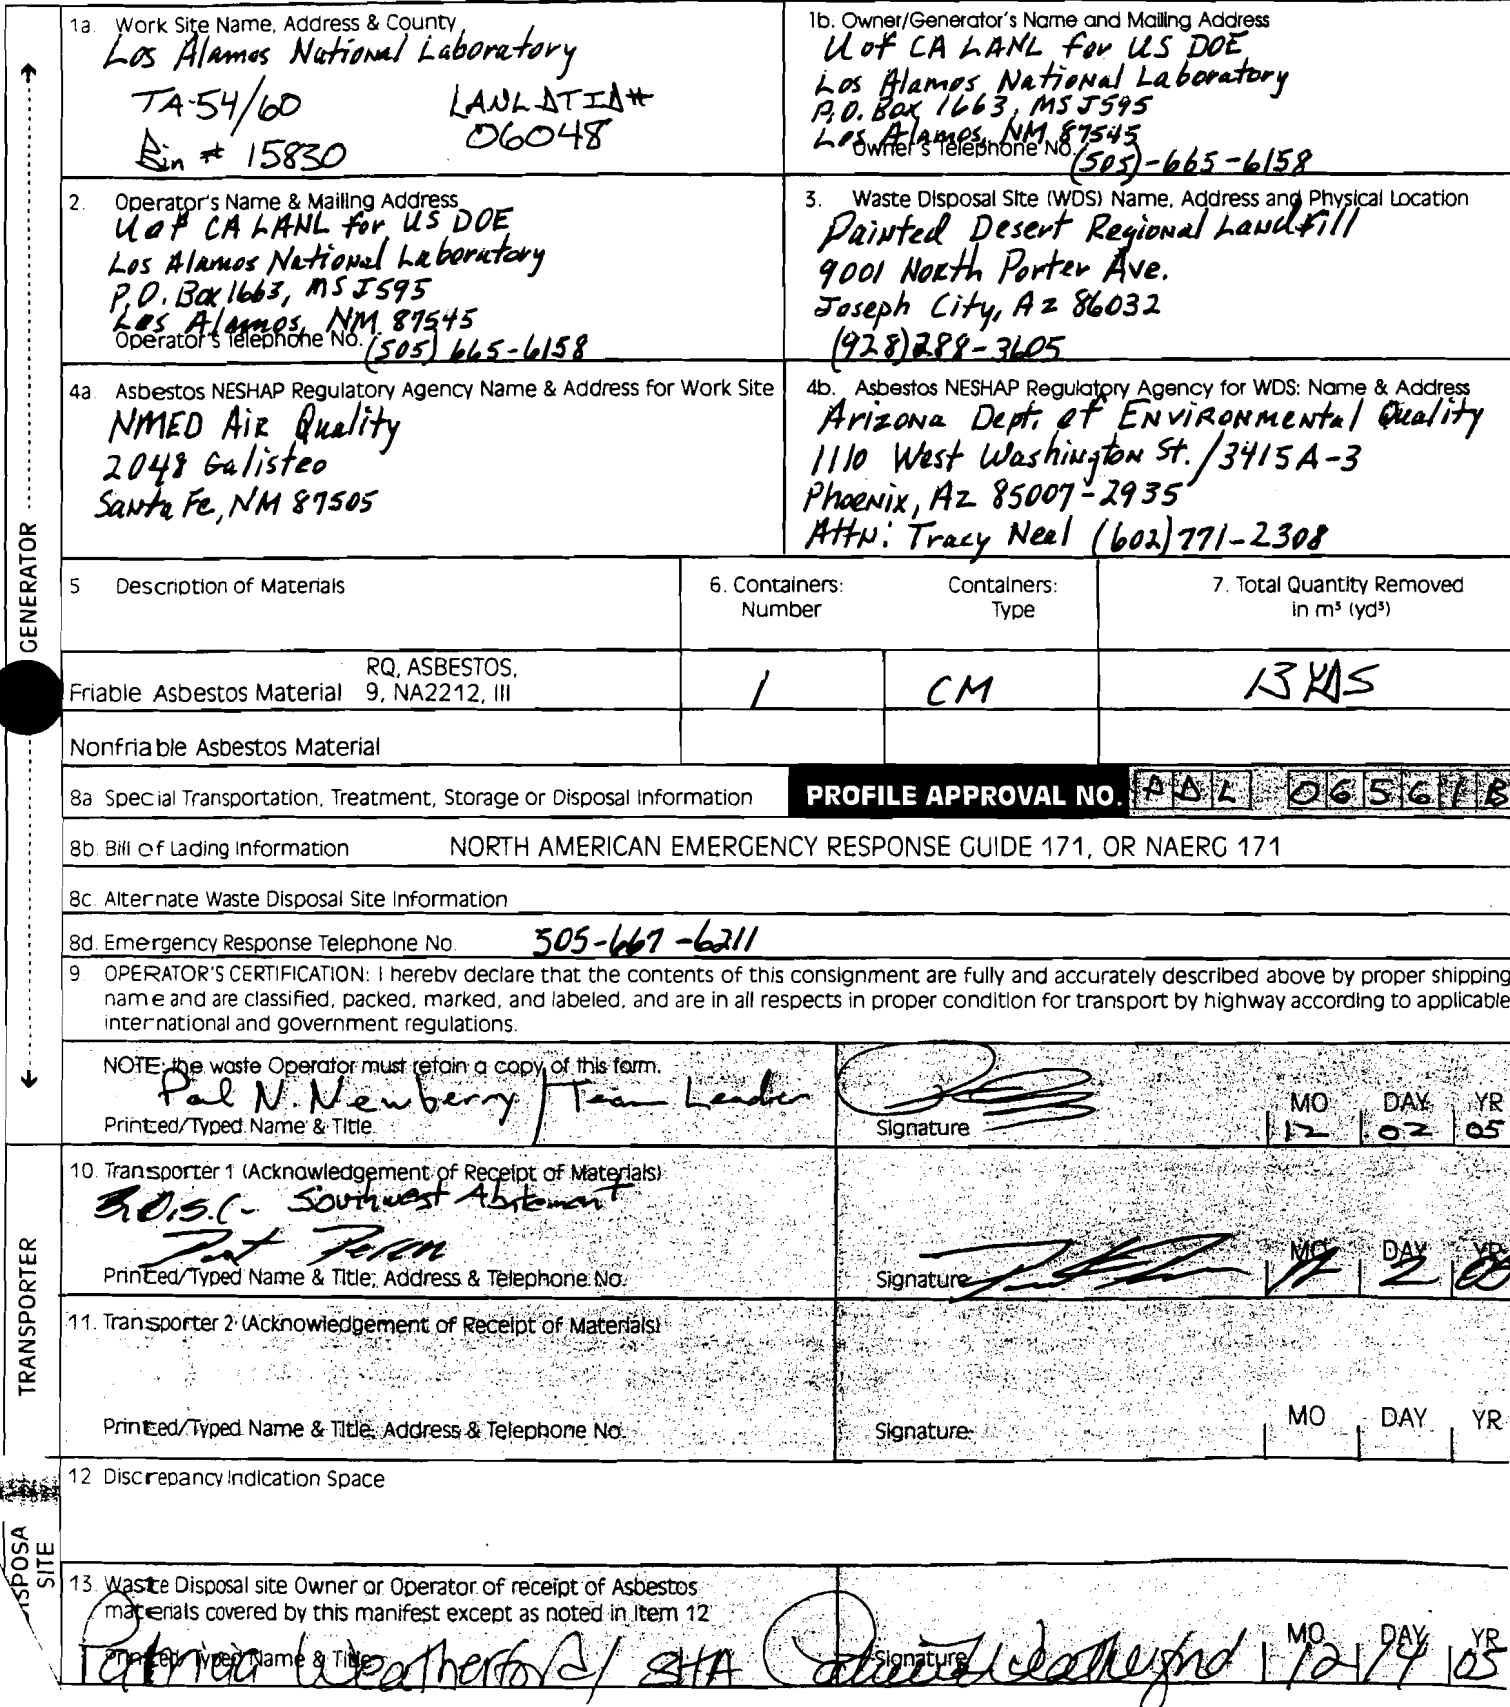 1a. Work Site Name, Address & County
Los Alamos National Laboratory
TA-54/60 LANL ATIA#
06048
Bin # 15830
1b. Owner/Generator's Name and Mailing Address
U of CA LANL for US DOE
Los Alamos National Laboratory
P.O. Box 1663, MS J595
Los Alamos, NM 87545
Owner's Telephone No. (505)-665-6158
2. Operator's Name & Mailing Address
U of CA LANL for US DOE
Los Alamos National Laboratory
P.O. Box 1663, MS J595
Los Alamos, NM 87545
Operator's Telephone No. (505) 665-6158
3. Waste Disposal Site (WDS) Name, Address and Physical Location
Painted Desert Regional Landfill
9001 North Porter Ave.
Joseph City, Az 86032
(928)288-3605
4a. Asbestos NESHAP Regulatory Agency Name & Address for Work Site
NMED Air Quality
2048 Galisteo
Santa Fe, NM 87505
4b. Asbestos NESHAP Regulatory Agency for WDS: Name & Address
Arizona Dept. of Environmental Quality
1110 West Washington St. /3415A-3
Phoenix, Az 85007-2935
Attn: Tracy Neal (602)771-2308
GENERATOR
5 Description of Materials
6. Containers: Number
Containers: Type
7. Total Quantity Removed in m³ (yd³)
Friable Asbestos Material RQ, ASBESTOS, 9, NA2212, III
1 CM 13 YDS
Nonfriable Asbestos Material
8a Special Transportation, Treatment, Storage or Disposal Information
PROFILE APPROVAL NO. 06561B
8b. Bill of Lading Information NORTH AMERICAN EMERGENCY RESPONSE GUIDE 171, OR NAERG 171
8c. Alternate Waste Disposal Site Information
8d. Emergency Response Telephone No. 505-667-6211
9. OPERATOR'S CERTIFICATION: I hereby declare that the contents of this consignment are fully and accurately described above by proper shipping
name and are classified, packed, marked, and labeled, and are in all respects in proper condition for transport by highway according to applicable
international and government regulations.
NOTE: the waste Operator must retain a copy of this form.
Pal N. Newberry / Team Leader
Printed/Typed Name & Title
Signature
MO DAY YR
12 02 05
TRANSPORTER
10. Transporter 1 (Acknowledgement of Receipt of Materials)
Southwest Abatement
Printed/Typed Name & Title, Address & Telephone No.
Signature
MO DAY YR
12 2
11. Transporter 2 (Acknowledgement of Receipt of Materials)
Printed/Typed Name & Title, Address & Telephone No.
Signature
MO DAY YR
12 Discrepancy Indication Space
ISPOSA
SITE
13. Waste Disposal site Owner or Operator of receipt of Asbestos
materials covered by this manifest except as noted in Item 12
Patricia Weatherford / SHA Patricia Weatherford
Printed/Typed Name & Title
Signature
MO DAY YR
12 14 05